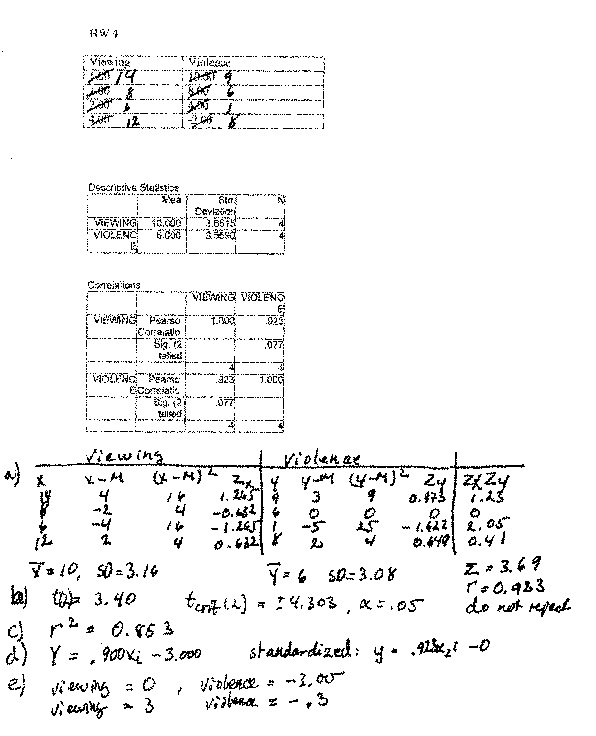 HW 4
Viewing Violence
14 9
8 6
6 1
12 8
Descriptive Statistics
Mea Std N
Deviation
VIEWING 10.000 4
VIOLENC 6.000 4
E
Correlations
VIEWING VIOLENC
E
VIEWING Pearso 1.000 .923
Correlatio
Sig. (2 .077
tailed
4 4
VIOLENC Pearso .923 1.000
E Correlatio
Sig. (2 .077
tailed
4 4
Viewing Violence
a) X X-M (X-M)² Zx Y Y-M (Y-M)² Zy ZxZy
14 4 16 1.265 9 3 9 0.973 1.23
8 -2 4 -0.632 6 0 0 0 0
6 -4 16 -1.265 1 -5 25 -1.622 2.05
12 2 4 0.632 8 2 4 0.649 0.41
X̄=10, SD=3.16 Ȳ=6 SD=3.08 Σ=3.69
r=0.923
b) t(2)= 3.40 tcrit(2) = ±4.303, α=.05 do not reject
c) r² = 0.853
d) Y = .900xi -3.000 standardized: y = .923xzi -0
e) viewing = 0, violence = -3.00
viewing = 3 violence = -.3